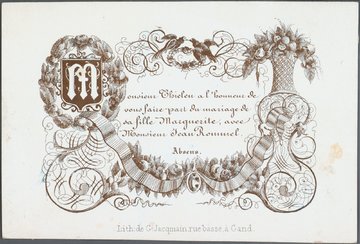 Monsieur Thielen a l'honneur de
vous faire part du mariage de
sa fille Marguerite, avec
Monsieur Jean Rommel.
Absens.
Lith: de G. Jacqmain, rue basse à Gand.